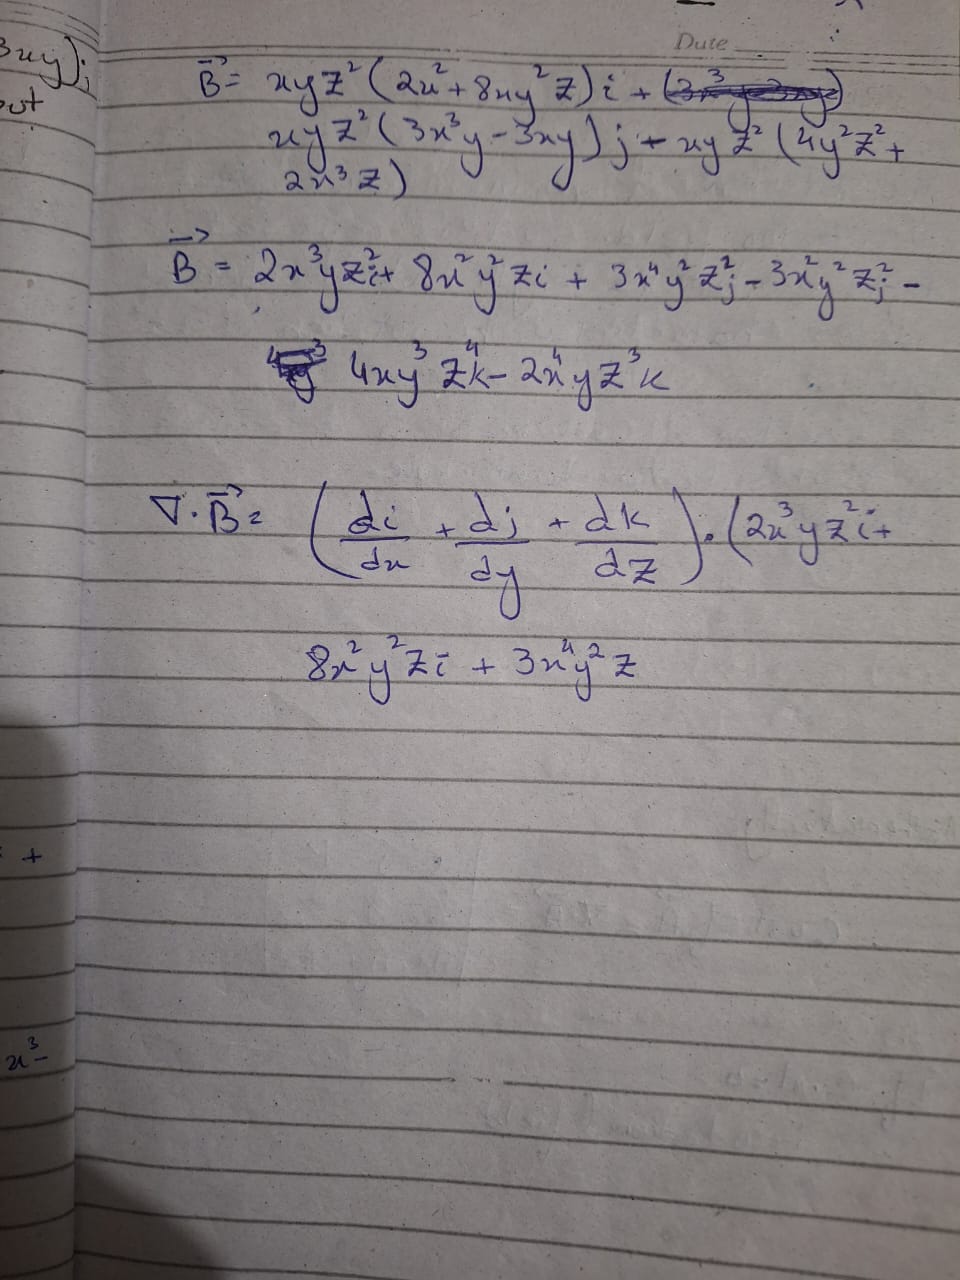 3xy);
out
Date
B⃗ = xyz²(2x²+8xy²z)i +
xyz²(3x³y-3xy)j - xyz²(4y²z²+
2x³z)
B⃗ = 2x³yz²i+ 8x²y²zi + 3x⁴y²z²j - 3x²y²z²j -
4xy³z⁴k - 2x⁴yz³k
∇·B⃗ = (di/dx + dj/dy + dk/dz)·(2x³yz²i+
8x²y²zi + 3x⁴y²z
+
x³-